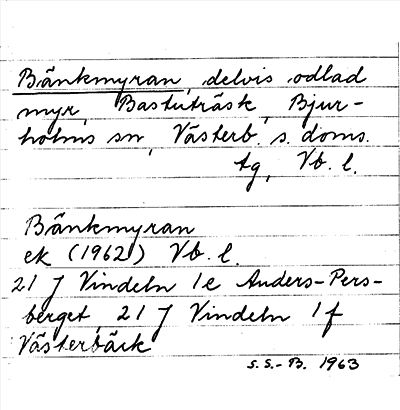 Bänkmyran, delvis odlad
myr, Bastuträsk, Bjur-
holms sn, Västerb. s. doms.
tg, Vb. l.
Bänkmyran
ek (1962) Vb. l.
21 J Vindeln 1e Anders-Pers-
berget, 21 J Vindeln 1f
Västerbäck
S.S.-B. 1963